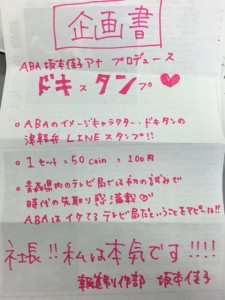 企画書
ABA 坂本佳子アナ プロデュース
ドキスタンプ♥
○ ABAのイメージキャラクター・ドキタンの
津軽弁 LINEスタンプ!!
○ 1セット=50coin=100円
○ 青森県内のテレビ局では初の試みで
時代の先取り感満載
ABAはイケてるテレビ局だということをアピール!!
社長!!私は本気です!!!!
報道制作部 坂本佳子